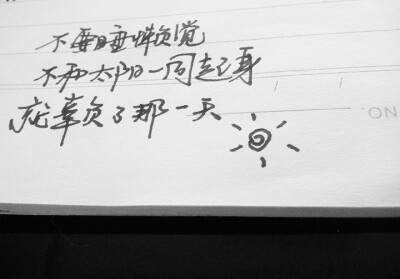 不要睡懒觉
不和太阳一同起身
就辜负了那一天
NO.